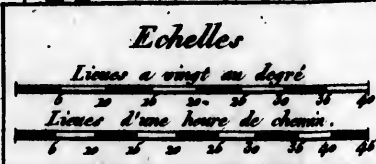 Echelles
Lieues a vingt au degré
5 10 15 20 25 30 35 40
Lieues d'une heure de chemin.
5 10 15 20 25 30 35 40 45